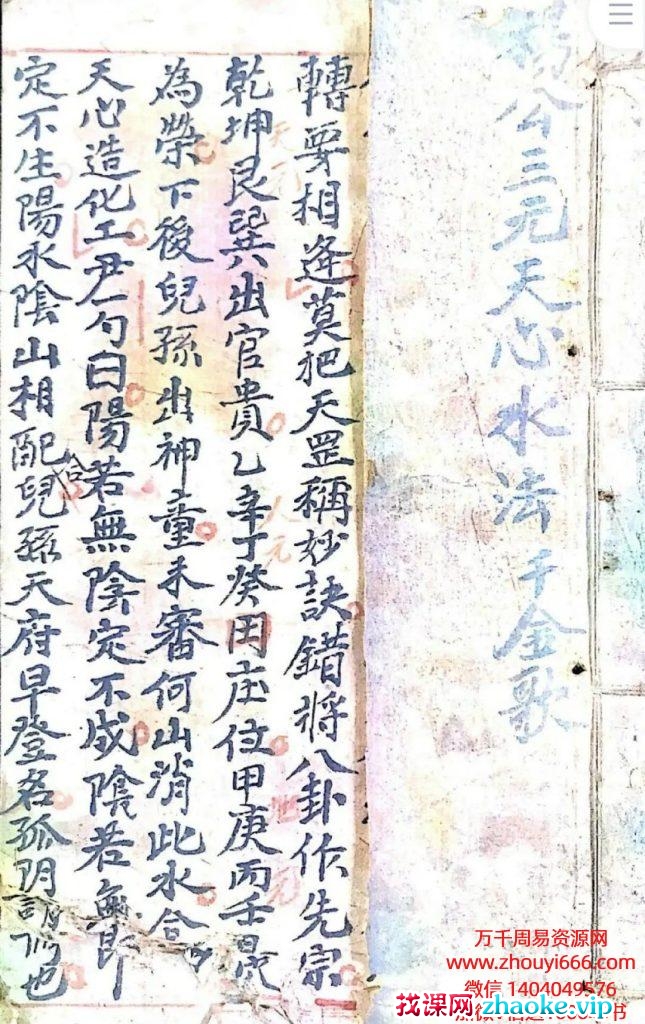 楊公三元天心水法千金歌
轉要相逢莫把天罡稱妙訣錯將八卦作先宗
乾坤艮巽出官貴乙辛丁癸田庄位甲庚丙壬最
為榮下後兒孫出神童未審何山消此水合
天心造化工尹勻曰陽若無陰定不成陰若無
定不生陽水陰山相配合兒孫天府早登名孤阴也
人元
地元
万千周易资源网
www.zhouyi666.com
微信 1404049576
找课网 zhaoke.vip